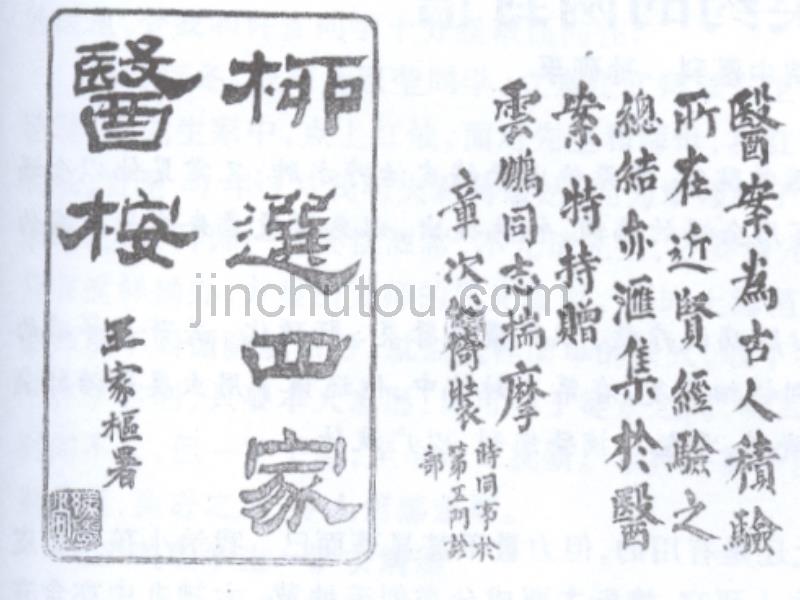 醫案為古人積驗
所在近賢經驗之
總結亦滙集於醫
案特持贈
雲鵬同志揣摩
章次公倚裝
時同
第
部
柳選四家
醫桉
王家樞署
jinchutou.com